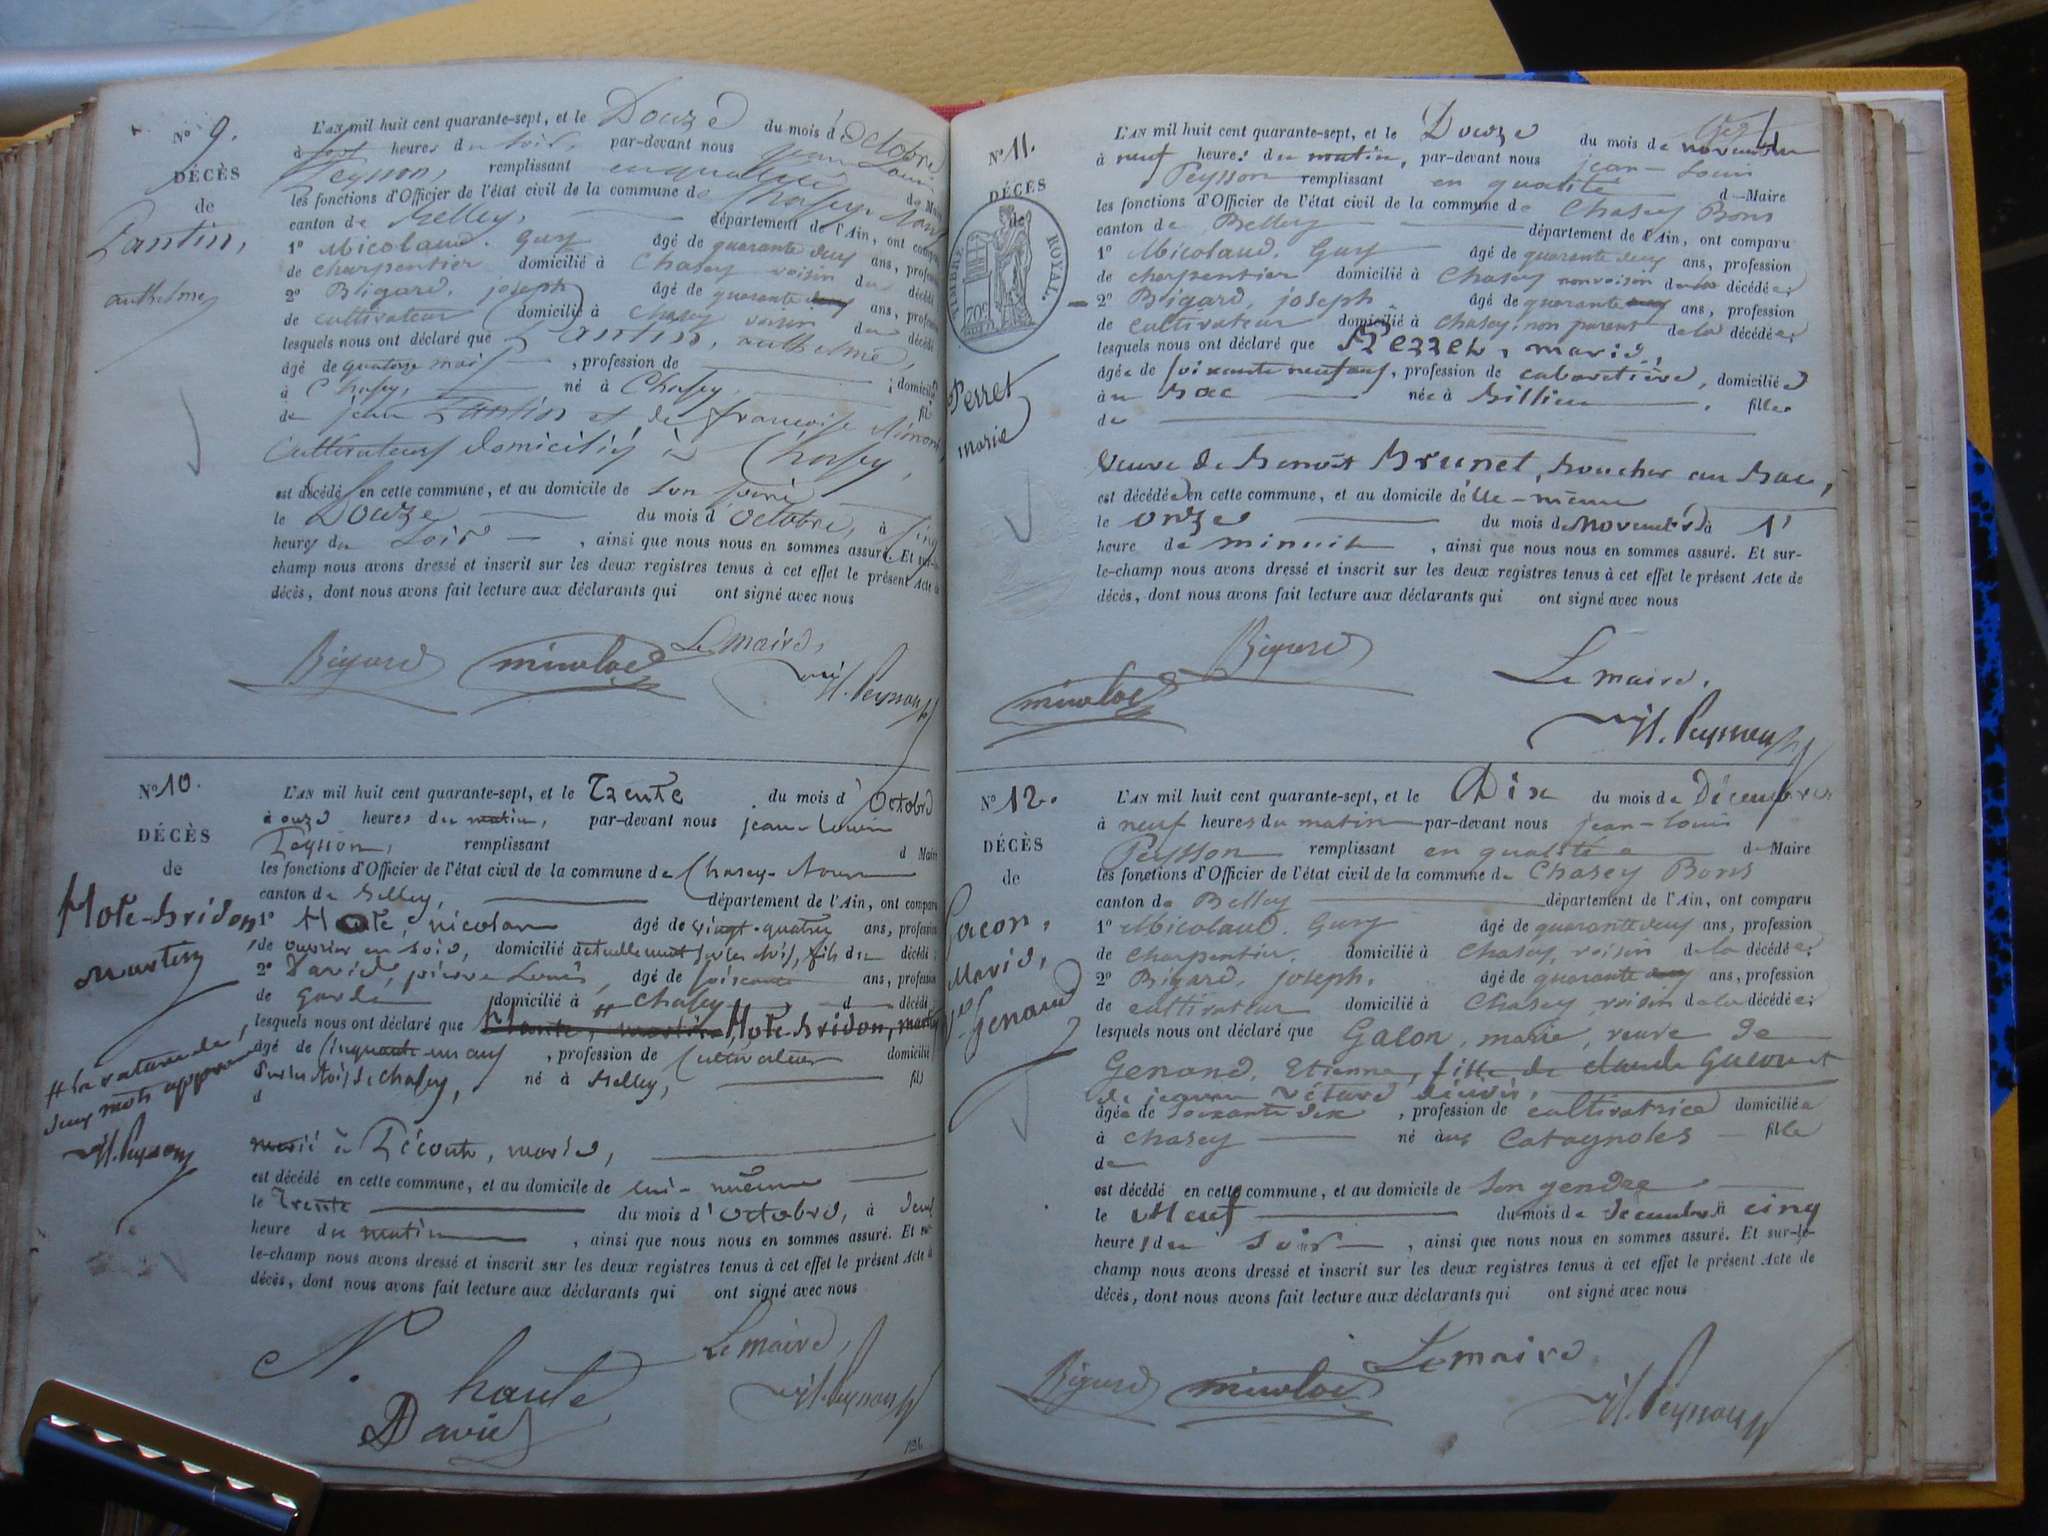 N° 9.
DÉCÈS
de
Pantin,
anthelme
L'AN mil huit cent quarante-sept, et le Douze du mois d'octobre
à sept heures du soir, par-devant nous jean Louis
Peysson, remplissant en qualité de Maire
les fonctions d'Officier de l'état civil de la commune de Chasey Bons
canton de Belley, département de l'Ain, ont comparu
1° Micolaud. Guy âgé de quarante deux ans, profession
de charpentier domicilié à Chasey voisin du décédé
2° Bigard, joseph âgé de quarante ans, profession
de cultivateur domicilié à Chasey voisin du décédé
lesquels nous ont déclaré que Pantin, anthelme,
âgé de quatorze mois, profession de ; domicilié
à Chasey, né à Chasey, fils
de jean Pantin et de françoise
Cultivateurs domiciliés à Chasey,
est décédé en cette commune, et au domicile de son père
le Douze du mois d'octobre, à cinq
heures du soir, ainsi que nous nous en sommes assuré. Et sur-le-
champ nous avons dressé et inscrit sur les deux registres tenus à cet effet le présent Acte de
décès, dont nous avons fait lecture aux déclarants qui ont signé avec nous
Bigard micolaud Le maire,
J.L. Peysson
N° 10.
DÉCÈS
de
Hote-bridon,
martin
# la rature de
deux mots approuvée
J.L. Peysson
L'AN mil huit cent quarante-sept, et le Trente du mois d'octobre
à onze heures du matin, par-devant nous jean-louis
Peysson, remplissant d Maire
les fonctions d'Officier de l'état civil de la commune de Chasey-Bons
canton de Belley, département de l'Ain, ont comparu
1° Hote, nicolas âgé de vingt-quatre ans, profession
de ouvrier en soie, domicilié actuellement sur les bois, fils du décédé ;
2° David, pierre Louis, âgé de soixante ans, profession
de garde domicilié à Chasey d décédé
lesquels nous ont déclaré que Hote-bridon, martin
âgé de cinquante un ans, profession de Cultivateur domicilié
sur les bois de Chasey, né à Belley, fils
d
marié à Técoute, marie,
est décédé en cette commune, et au domicile de lui-même
le Trente du mois d'octobre, à deux
heure du matin, ainsi que nous nous en sommes assuré. Et sur-
le-champ nous avons dressé et inscrit sur les deux registres tenus à cet effet le présent Acte de
décès, dont nous avons fait lecture aux déclarants qui ont signé avec nous
N. haute Le maire,
David J.L. Peysson
126
4
N° 11.
DÉCÈS
de
TIMBRE ROYAL.
70c
Perret
marie
L'AN mil huit cent quarante-sept, et le Douze du mois de novembre
à neuf heures du matin, par-devant nous jean-Louis
Peysson remplissant en qualité de Maire
les fonctions d'Officier de l'état civil de la commune de Chasey Bons
canton de Belley département de l'Ain, ont comparu
1° Micolaud. Guy âgé de quarante deux ans, profession
de charpentier domicilié à Chasey non voisin de la décédée ;
2° Bigard, joseph âgé de quarante ans, profession
de cultivateur domicilié à Chasey, non parent de la décédée ;
lesquels nous ont déclaré que Perret, marie,
âgée de soixante neuf ans, profession de cabaretière, domiciliée
au Bac née à Billieu, fille
de
Veuve de Benoît Brunet, boucher au Bac,
est décédée en cette commune, et au domicile d'elle-même
le onze du mois de novembre à 1'
heure de minuit, ainsi que nous nous en sommes assuré. Et sur-
le-champ nous avons dressé et inscrit sur les deux registres tenus à cet effet le présent Acte de
décès, dont nous avons fait lecture aux déclarants qui ont signé avec nous
Bigard
micolaud Le maire,
J.L. Peysson
N° 12.
DÉCÈS
de
Gacon,
Marie,
Ve Genand
L'AN mil huit cent quarante-sept, et le Dix du mois de Décembre
à neuf heures du matin par-devant nous jean-louis
Peysson remplissant en qualité de Maire
les fonctions d'Officier de l'état civil de la commune de Chasey Bons
canton de Belley département de l'Ain, ont comparu
1° Micolaud. Guy âgé de quarante deux ans, profession
de charpentier, domicilié à Chasey, voisin de la décédée ;
2° Bigard, joseph. âgé de quarante ans, profession
de cultivateur domicilié à Chasey, voisin de la décédée ;
lesquels nous ont déclaré que Gacon, marie, veuve de
Genand, Etienne, fille de claude Gacon et
de jeanne décédés,
âgée de soixante dix, profession de cultivatrice domiciliée
à Chasey né aux Catagnoles fille
de
est décédé en cette commune, et au domicile de son gendre
le Neuf du mois de decembre à cinq
heures du soir, ainsi que nous nous en sommes assuré. Et sur-le-
champ nous avons dressé et inscrit sur les deux registres tenus à cet effet le présent Acte de
décès, dont nous avons fait lecture aux déclarants qui ont signé avec nous
Bigard micolaud Le maire
J.L. Peysson